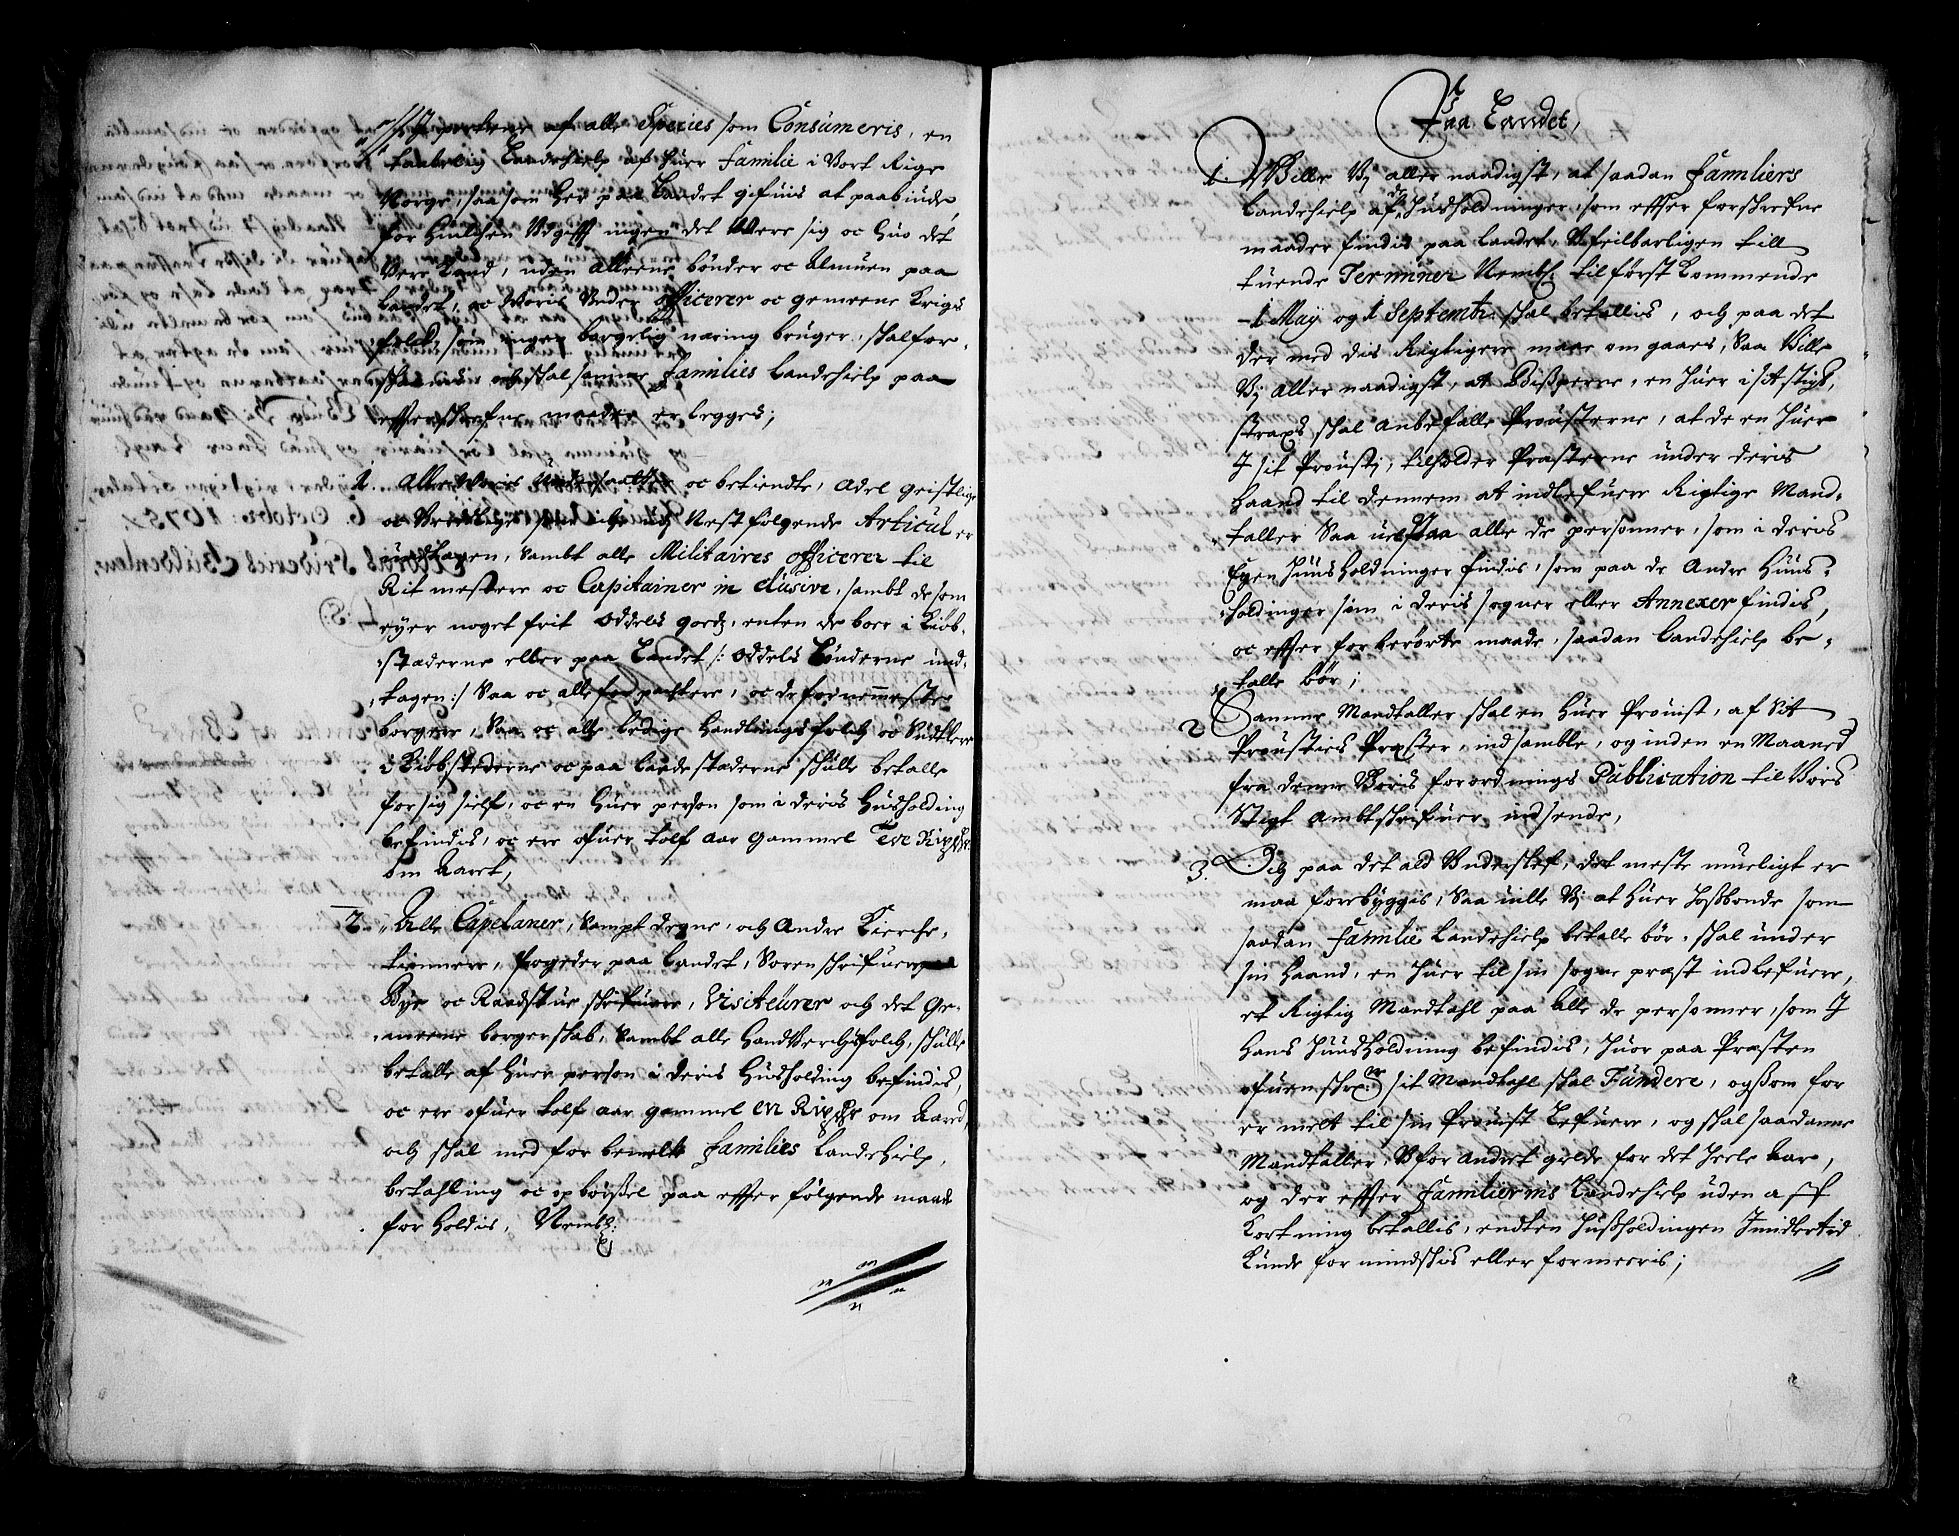 parterne af alle Species som Consumeris, en
taalelig Landehielp af huer Familie i Vort Rige
Norge, saa som her paa Landet gifuis at paabiude,
for huilchen Udgifft ingen det Were sig oc huo det
Vere Kand, uden alleene bønder oc Almuen paa
Landet, oc Woris Under officerer oc gemeene Krigs
folch, som ingen borgelig næring bruger, skal for-
skaanis och skal samme Families Landehielp paa
effterskrefne maader erlegges;
1. Alle Woris Undersaatter oc betiendte, Adel Geistlige
oc Verdslige som iche udj Nestfølgende Articul er
undtagen, Sambt alle Militaires officerer til
Ritmestere oc Capitainer in clusive, sambt de som
eyer noget frit oddels gods, enten de boer i Kiøb-
stæderne eller paa Landet /: Oddels bønderne und-
tagen :/ Saa oc alle forpachtere, oc de fornemmeste
borgere, Saa oc alle ledige handlingsfolch oc
i Kiøbstederne oc paa ladestæderne skulle betalle
for sig sielf, oc en huer person som i deris Huusholding
befindis, oc ere ofuer tolf aar gammel Tve Rixdlr
om Aaret,
2. Alle Capelaner, Sampt degne, och Andre Kierche-
tiennere, fogeder paa Landet, Sorenskrifuere
Bye oc Raadstue skrifuere, Visiteurer och det Ge-
meene borgerskab, Sambt alle Handtverchsfolch, skulle
betalle af huer person i deris Huusholding befindis,
oc ere ofuer tolf aar gammel en Rixdlr om Aaret,
och skal med forbemelte Families Landehielp,
betahling oc opbørsel paa effterfølgende maade
forholdis, Nembl:
Paa Landet,
1. Wille Vj allernaadigst, at saadan Familiers
Landehielp af de huusholdninger, som effter forskrefne
maader findis paa Landet, Ufeilbarligen till
tuende Terminer Nembl. til først Kommende
1 Maij og 1 Septembr: skal betallis, och paa det
der med dis Rigtigere maae omgaaes, Saa Wille
Vj allernaadigst, at Bisperne, en huer i sit Stigt,
straxs skal anbefalle Prousterne, at de en huer
I sit Proustj, tilholder Præsterne under deris
haand til dennem at indlefuere Rigtige Mand-
taller Saa uel paa alle de personner, som i deris
Egen Huusholdninger findis, som paa de Andre Huus-
holdinger som i deris sogner eller Annexer findis,
oc effter forberørte maade, saadan Landehielp be-
talle bør;
2. Samme Mandtaller skal en huer Prouist, af Sit
Prousties Præster, indsamble, og inden en Maaned
fra denne Voris forordnings Publication til Vores
Stigt Ambtskrifuer indsende,
3. Och paa det ald Underslef, det meste mueligt er
maa forebyggis, Saa uille Vj at huer Hosbonde som
saadan Familie Landehielp betalle bør, skal under
sin haand, en huer til sin sogne præst indlefuere,
et Rigtig Mandtahl paa alle de personner, som I
hans Huusholdning befindis, huor paa Præsten
ofuenskr: sit Mandtahl skal Fundere, og som for
ermelt til sin Prouist Lefuere, og skal saadanne
Mandtaller, Uforandret gielde for det heele Aar,
og der effter Familiernis Landehielp uden aff
Kortning betallis, endten Huusholdingen Imidlertid
Kunde formindskis eller formeeris;